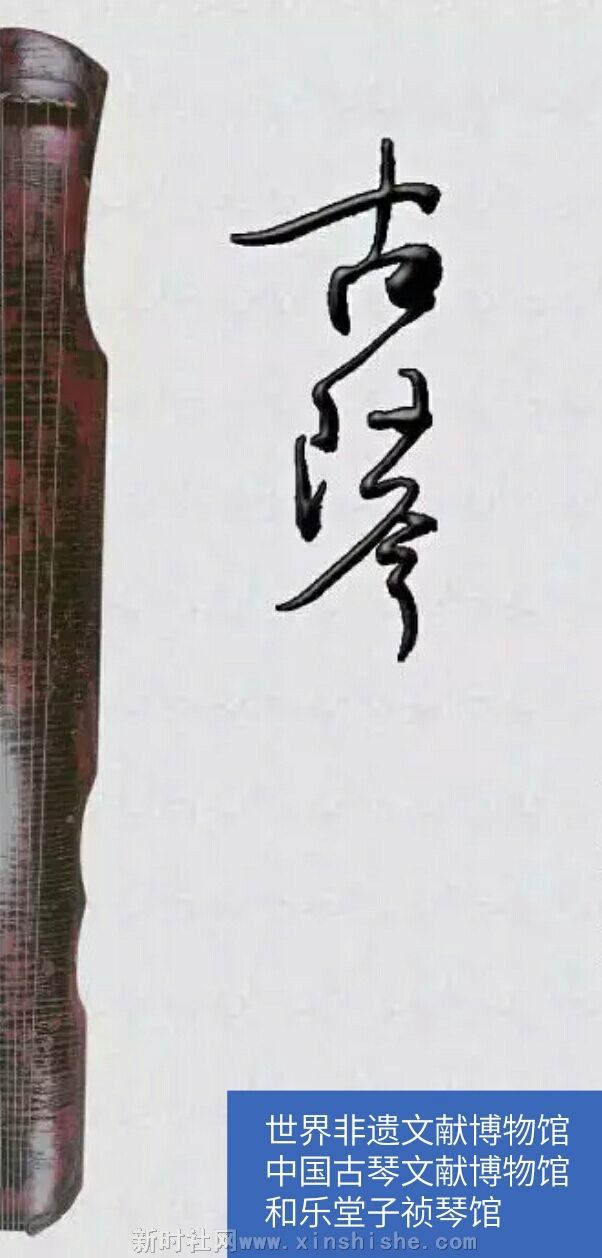 古琴
世界非遗文献博物馆
中国古琴文献博物馆
和乐堂子祯琴馆
新时社网www.xinshishe.com